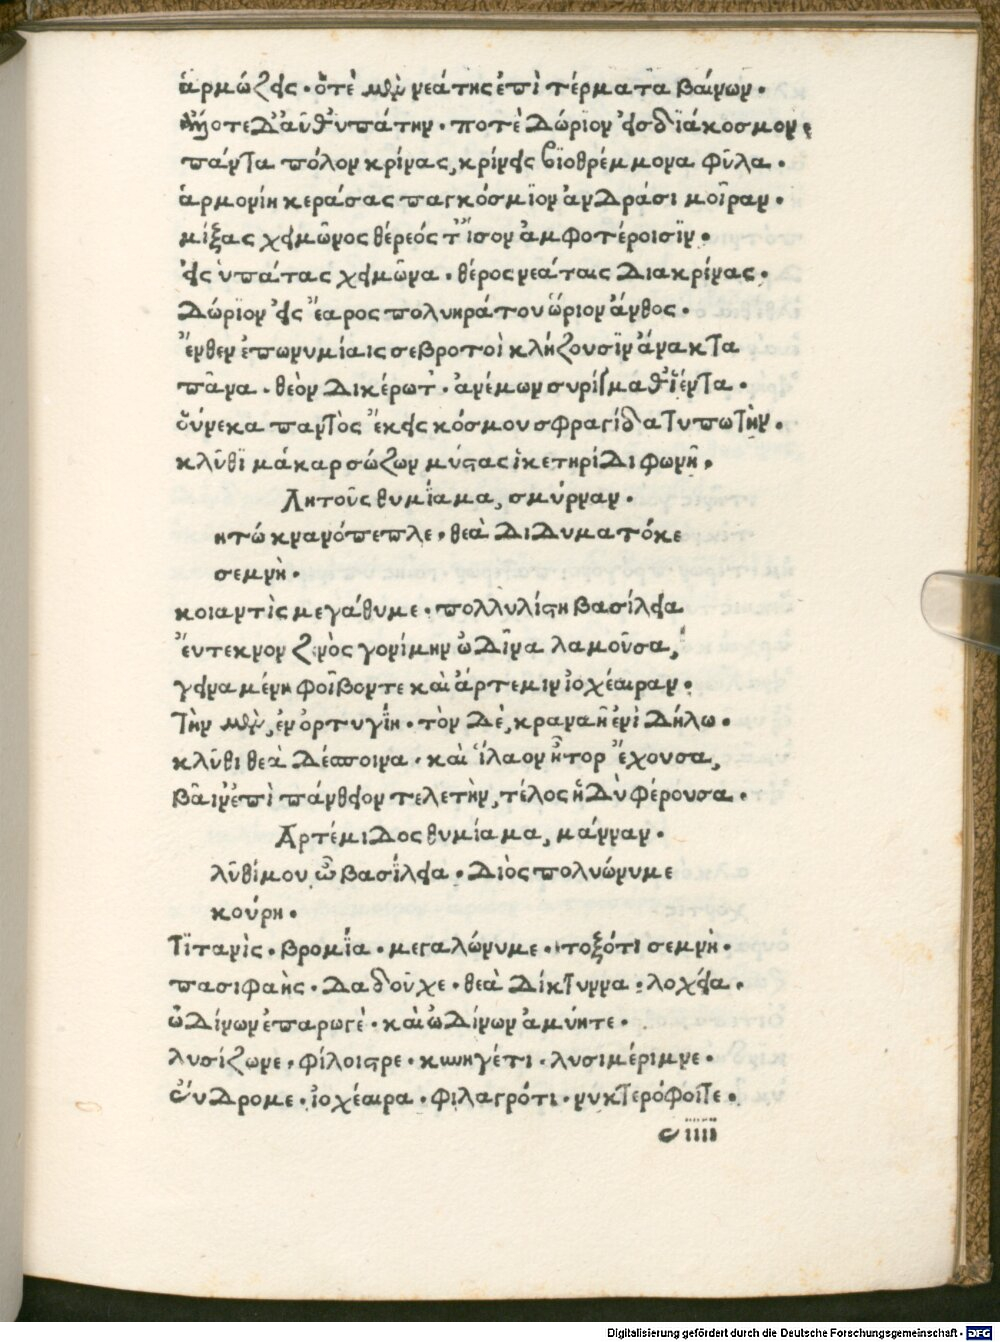 ἁρμόζεις · ὁτὲ μὲν νεάτης ἐπὶ τέρματα βαίνων ·
ἄλλοτε Δ' αὖθ' ὑπάτην · ποτὲ Δώριον εἰς διάκοσμον ·
πάντα πόλον κρίνας, κρίνεις βιοθρέμμονα φῦλα ·
ἁρμονίη κεράσας παγκόσμιον ἀνδράσι μοῖραν ·
μίξας χειμῶνος θέρεός τ' ἴσον ἀμφοτέροισιν ·
εἰς ὑπάτας χειμῶνα · θέρος νεάταις διακρίνας ·
Δώριον εἰς ἔαρος πολυηράτου ὥριον ἄνθος ·
ἔνθεν ἐπωνυμίαις σε βροτοὶ κλήζουσιν ἄνακτα
πᾶνα · θεὸν δικέρωτ' · ἀνέμων συρίγμαθ' ἱέντα ·
οὕνεκα παντὸς ἔχεις κόσμου σφραγίδα τυπωτήν ·
κλῦθι μάκαρ σώζων μύστας ἱκετηρίδι φωνῇ ·
Λητοῦς θυμίαμα, σμύρναν ·
ητώ κυανόπεπλε · θεὰ διδυματόκε
σεμνή ·
κοιαντὶς μεγάθυμε · πολλυλίστη βασίλεια
εὔτεκνον ζηνὸς γονίμην ὠδῖνα λαχοῦσα,
γειναμένη φοῖβόν τε καὶ ἄρτεμιν ἰοχέαιραν ·
τὴν μὲν, ἐν ὀρτυγίη · τὸν δὲ, κραναῇ ἐνὶ δήλω ·
κλῦθι θεὰ δέσποινα · καὶ ἵλαον ἦτορ ἔχουσα,
βαῖν' ἐπὶ πάνθειον τελετήν, τέλος ἡδὺ φέρουσα ·
Ἀρτέμιδος θυμίαμα, μάνναν ·
λῦθί μου ὦ βασίλεια · Διὸς πολυώνυμε
κούρη ·
Τιτανὶς · βρομία · μεγαλώνυμε · τοξότι σεμνή ·
πασιφαὴς · δαδοῦχε · θεὰ δίκτυννα · λοχεία ·
ὠδίνων ἐπαρωγὲ · καὶ ὠδίνων ἀμύητε ·
λυσίζωνε, φίλοιστρε · κυνηγέτι · λυσιμέριμνε ·
εὔδρομε · ἰοχέαιρα · φιλαγρότι · νυκτερόφοιτε ·
c iiii
Digitalisierung gefördert durch die Deutsche Forschungsgemeinschaft - DFG